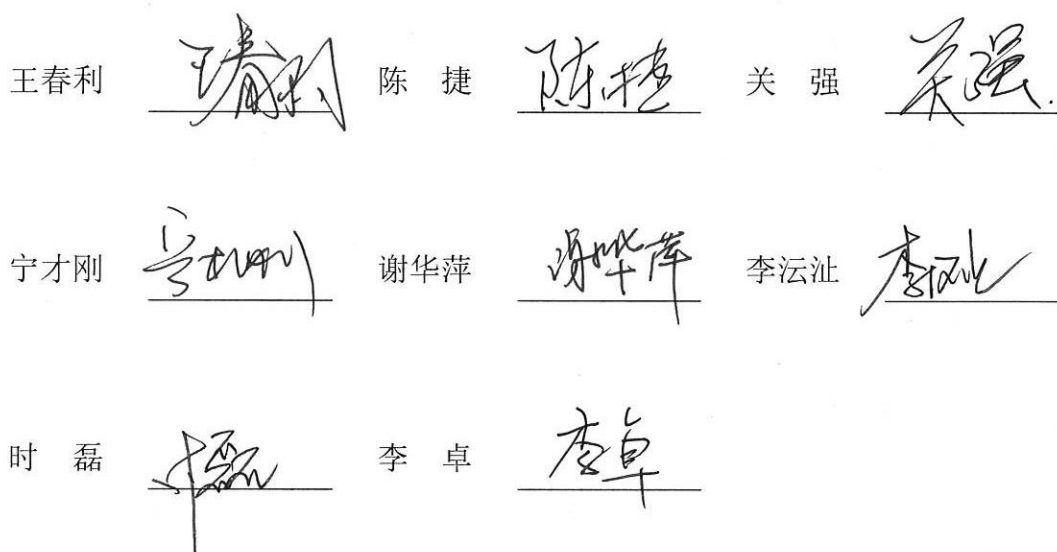 王春利 王春利 陈 捷 陈捷 关 强 关强
宁才刚 宁才刚 谢华萍 谢华萍 李沄沚 李沄沚
时 磊 时磊 李 卓 李卓